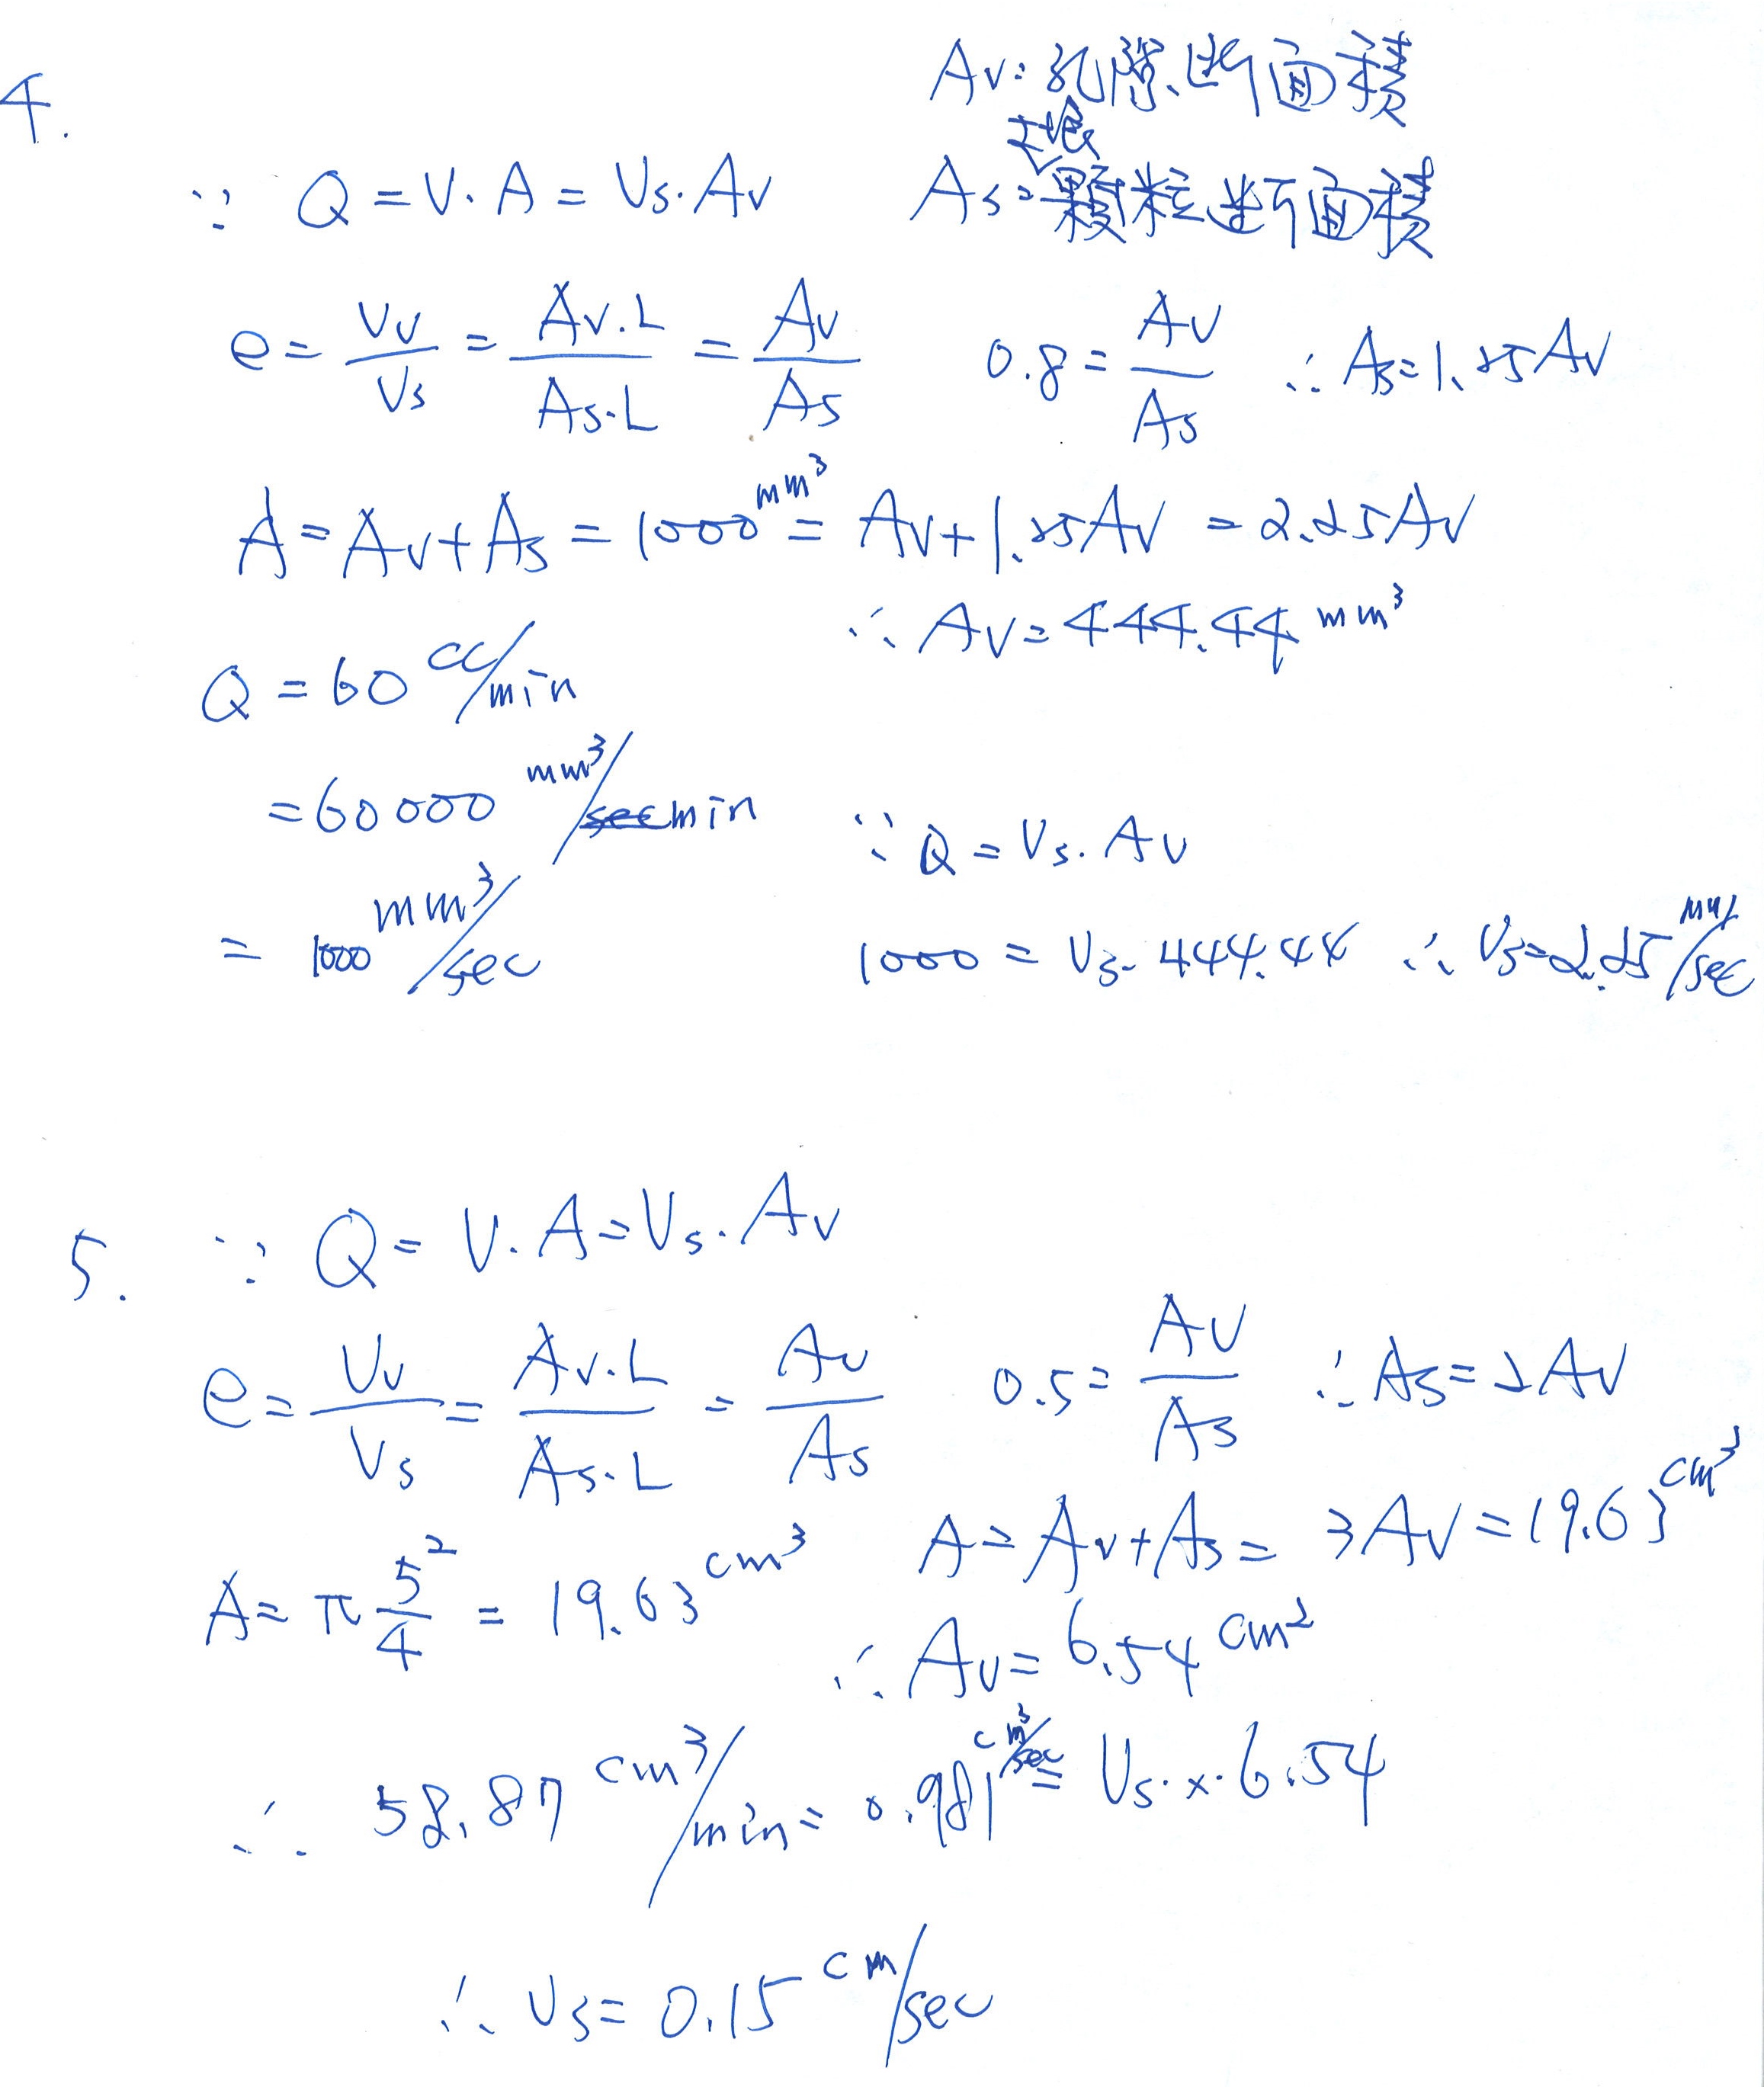 4.
Av: 孔隙断面積
∵ Q = V.A = Vs.Av
土壤
As: 顆粒断面積
e = Vv/Vs = Av.L/As.L = Av/As
0.8 = Av/As ∴ As = 1.25Av
A = Av + As = 1000 mm³ = Av + 1.25Av = 2.25Av
∴ Av = 444.44 mm³
Q = 60 cc/min
= 60000 mm³/min
∵ Q = Vs.Av
= 1000 mm³/sec
1000 = Vs. 444.44 ∴ Vs = 2.25 mm/sec
5. ∵ Q = V.A = Vs.Av
e = Vv/Vs = Av.L/As.L = Av/As
0.5 = Av/As ∴ As = 2Av
A = π 5²/4 = 19.63 cm³
A = Av + As = 3Av = 19.63 cm³
∴ Av = 6.54 cm²
∴ 58.87 cm³/min = 0.981 cm³/sec = Vs.x.6.54
∴ Vs = 0.15 cm/sec